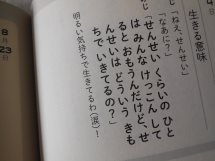 生きる意味
「ねえ、せんせい」
「なあに？」
「せんせい くらいの ひと
は みんな けっこんして
ると おもうんだけど、せ
んせいは どういう きも
ちで いきてるの？」
明るい気持ちで生きてるわ(涙)！
8月
23日